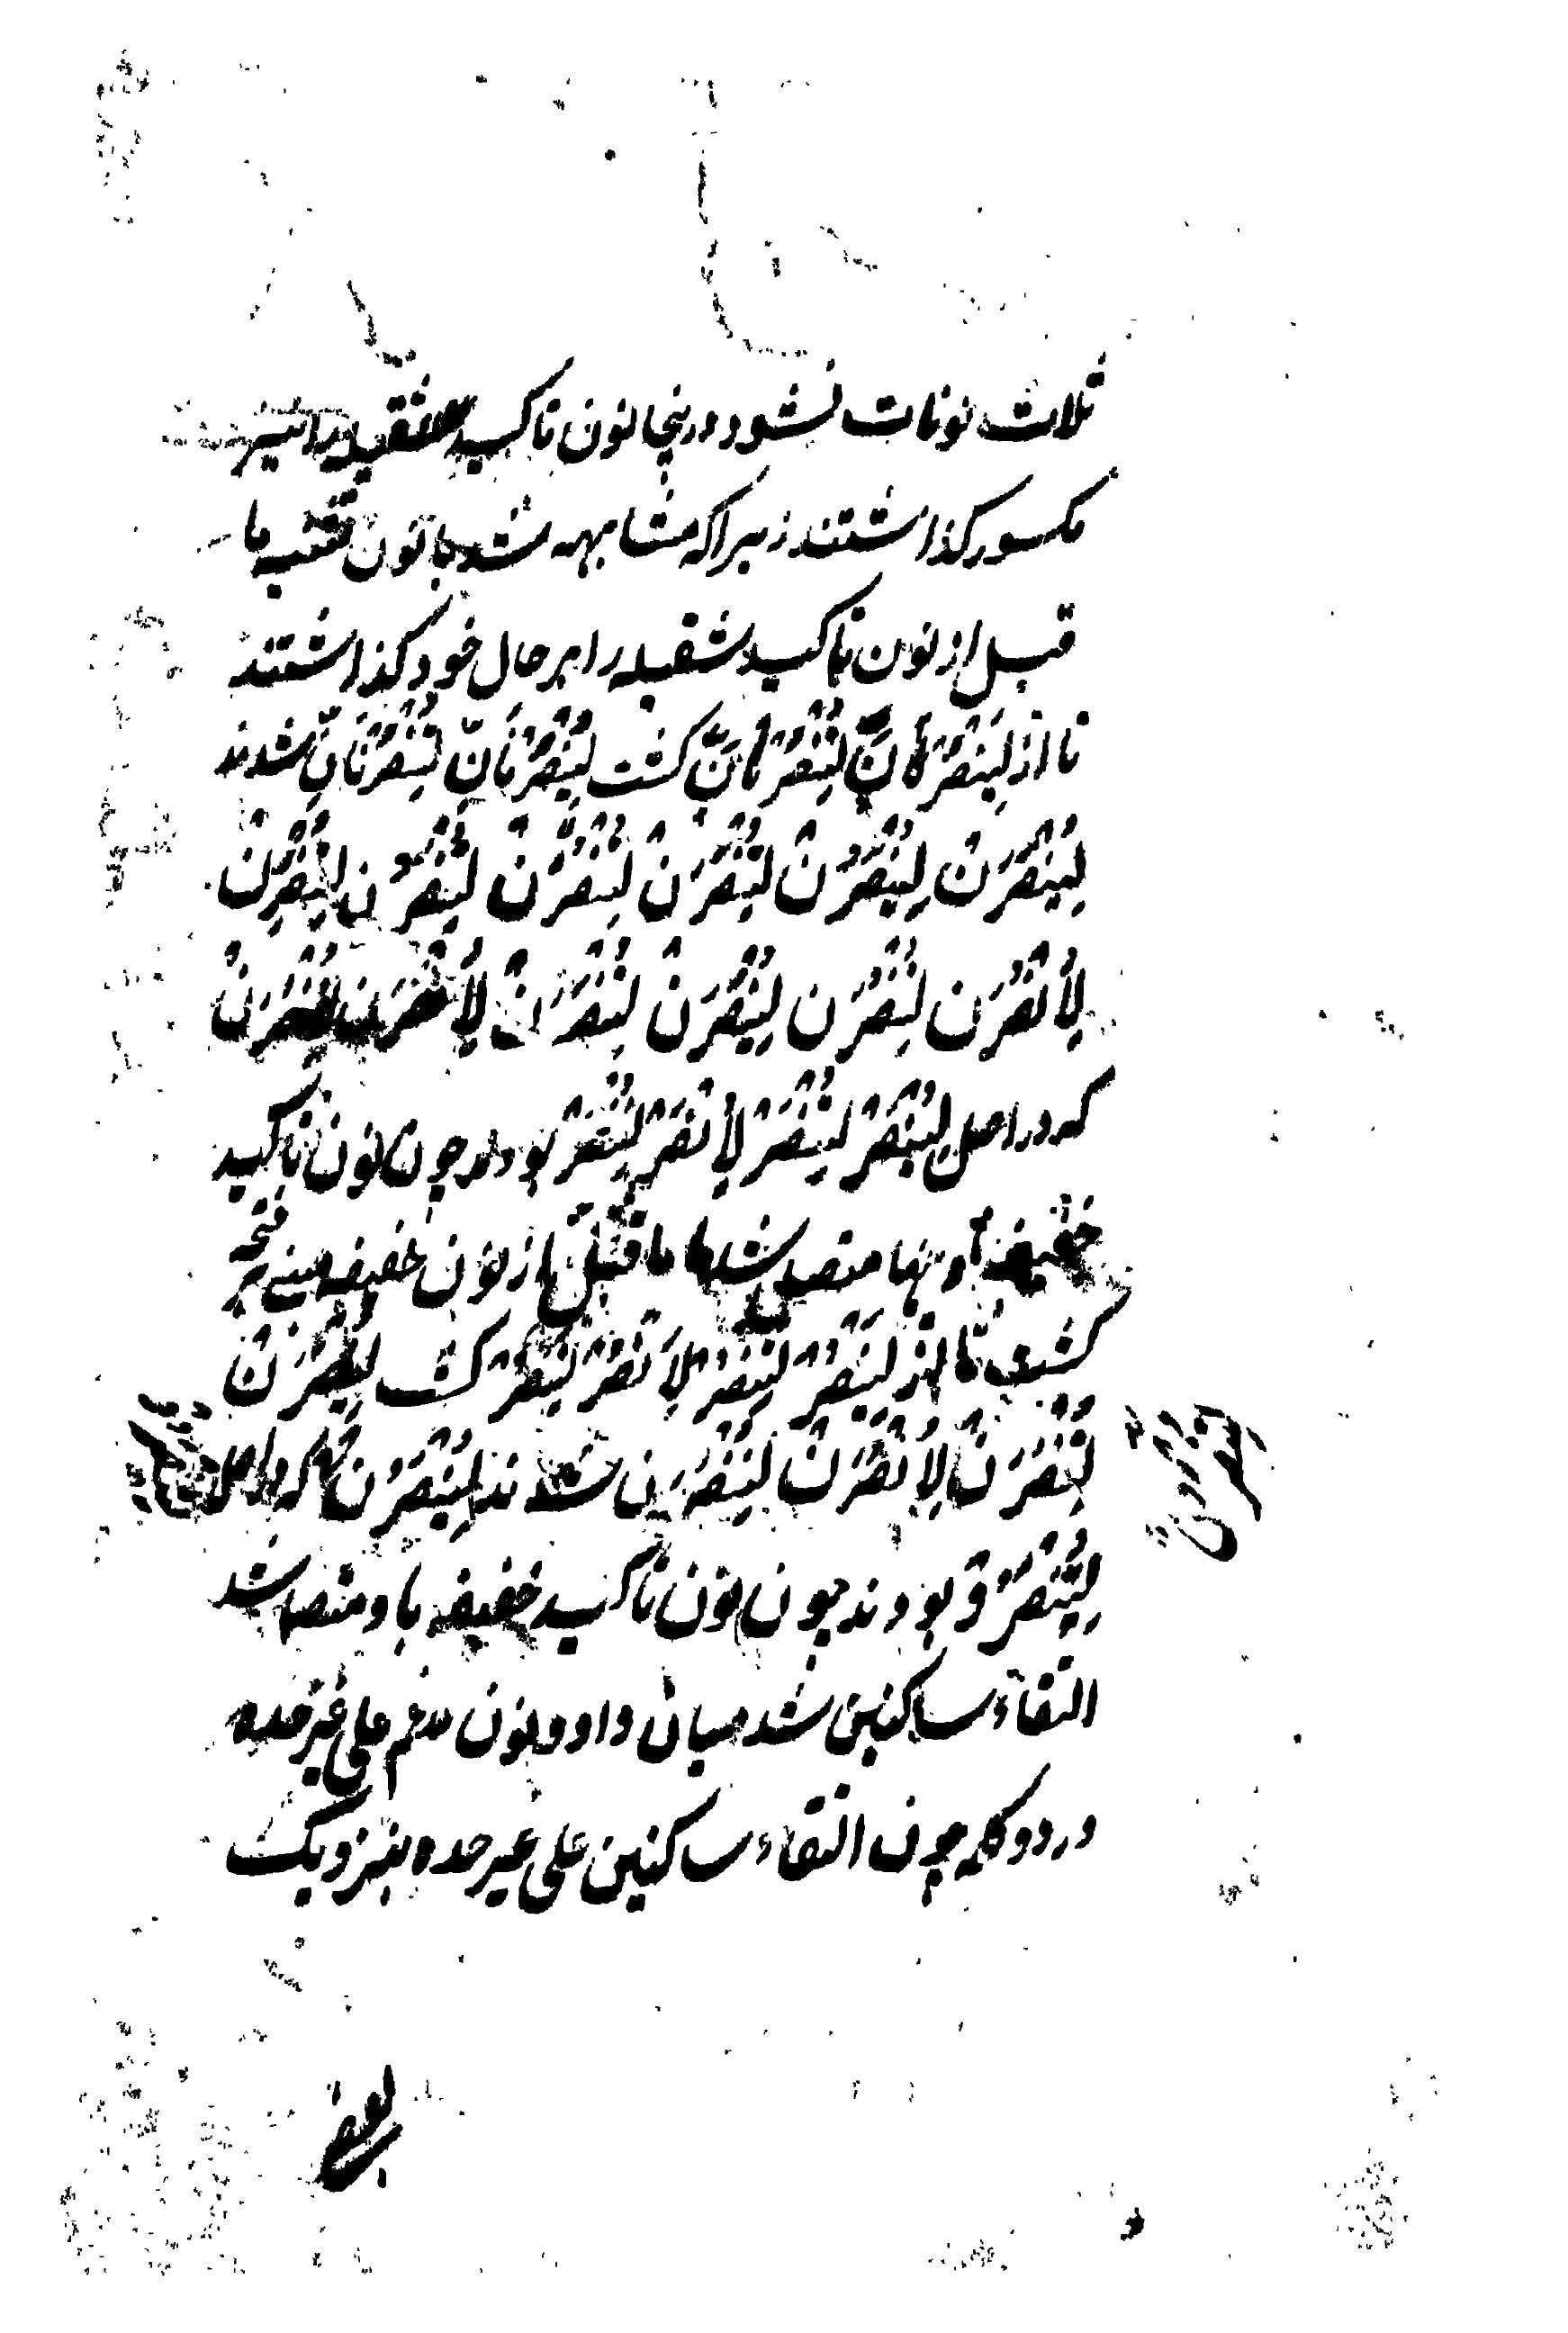 ثلاث نونات نشود درینجا نون تاکید ثقیله را نیز
مکسور کذاشتند زیراکه مشابهه شد با نون تثنیه ما
قبل از نون تاکید ثقیله را بر حال خود کذاشتند
تا از لِیَنْصُرْنَانَّ لِتُنْصَرْنَانَّ کشت لِیَنْصُرْنَانِّ لِیُنْصَرْنَانِّ شدند
لِیَنْصُرَنْ لِیَنْصُرُنْ لِتَنْصُرَنْ لِیُنْصَرَنْ لِیُنْصَرُنْ لِتُنْصَرِنْ
لِأَنْصُرَنْ لِنَنْصُرَنْ لِیُنْصَرَنْ لِتُنْصَرَنْ لِأُنْصَرَنْ لِنُنْصَرَنْ
که در اصل لِیُنْصَرْ لِتُنْصَرْ لِأُنْصَرْ لِنُنْصَرْ بودند چون نون تاکید
خفیفه با و نها متصل شد ما قبل از نون خفیفه مبنی بر فتحه
کشت تا از لِیَنْصُرْ لِتَنْصُرْ لِأَنْصُرْ لِنَنْصُرْ کشت لِیَنْصُرَنْ
لِتُنْصَرَنْ لِأُنْصَرَنْ لِنُنْصَرَنْ شدند لِیُنْصَرُنْ که در اصل
لِیُنْصَرُوْ بودند چون نون تاکید خفیفه با و متصل شد
التقاء ساکنین شد میان واو و نون مدغم علی غیر حده
در دو کلمه چون التقاء ساکنین علی غیر حده بنزدیک
بعض